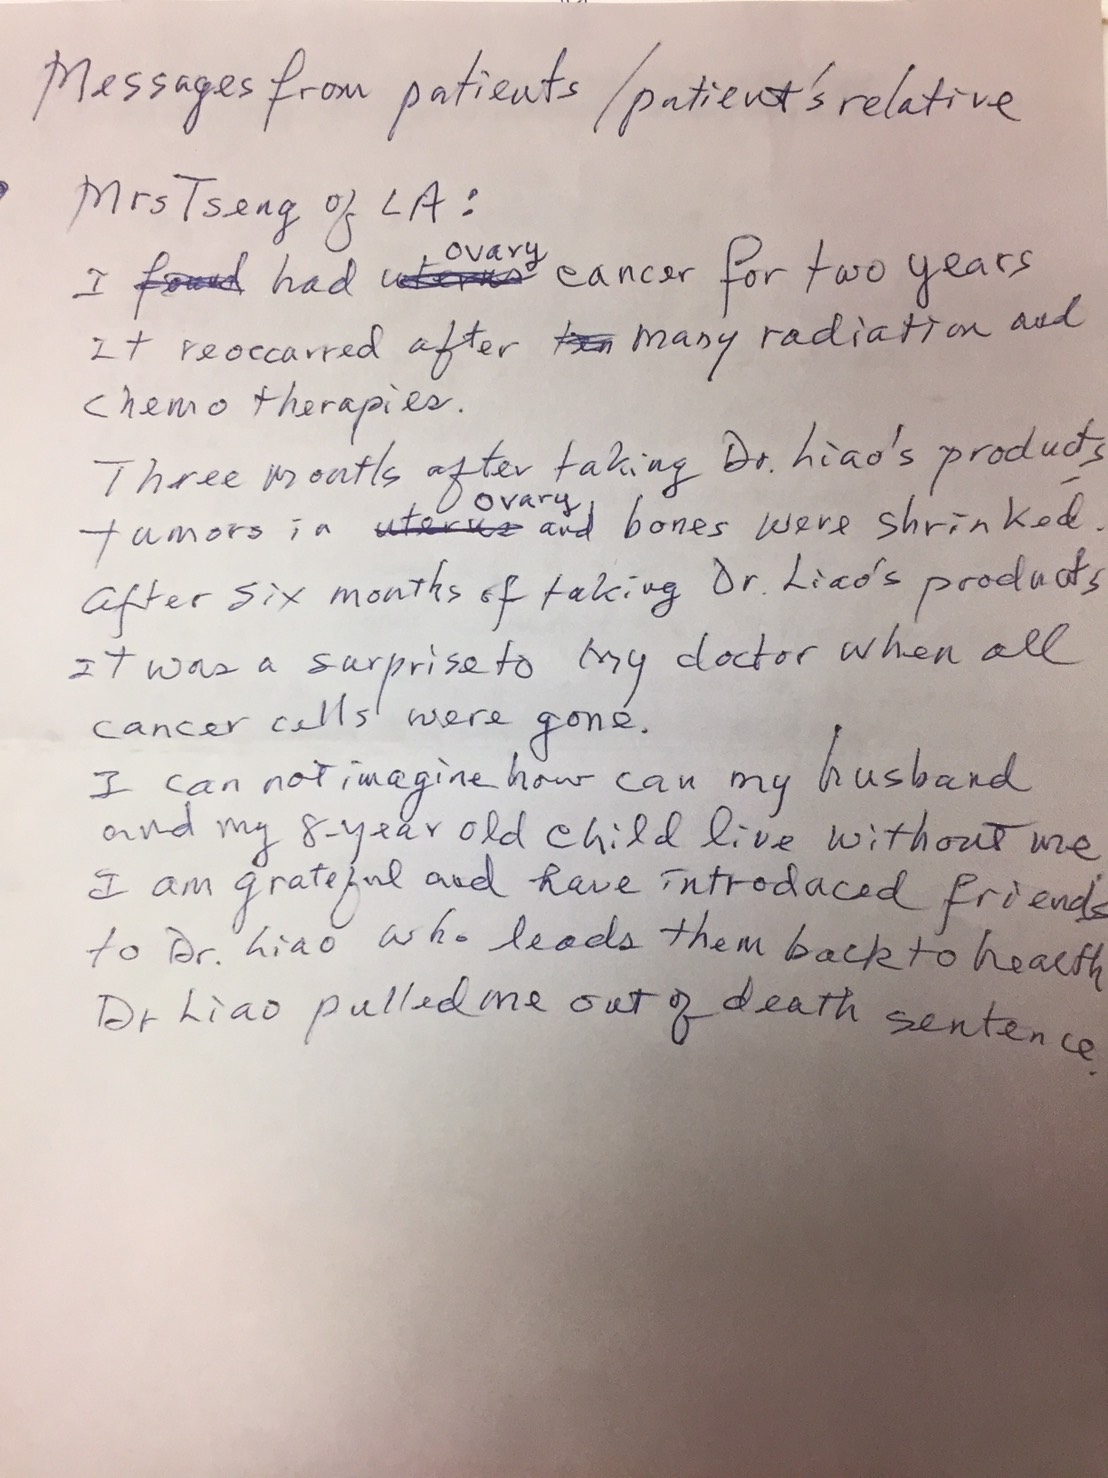 Messages from patients / patient's relative
Mrs Tseng of LA:
I found had uterus ovary cancer for two years
It reoccarred after ten many radiation and
chemo therapies.
Three months after taking Dr. Liao's products
tumors in uterus ovary and bones were shrinked.
after six months of taking Dr. Liao's products
It was a surprise to my doctor when all
cancer cells were gone.
I can not imagine how can my husband
and my 8-year old child live without me
I am grateful and have introduced friends
to Dr. Liao who leads them back to health
Dr Liao pulled me out of death sentence.